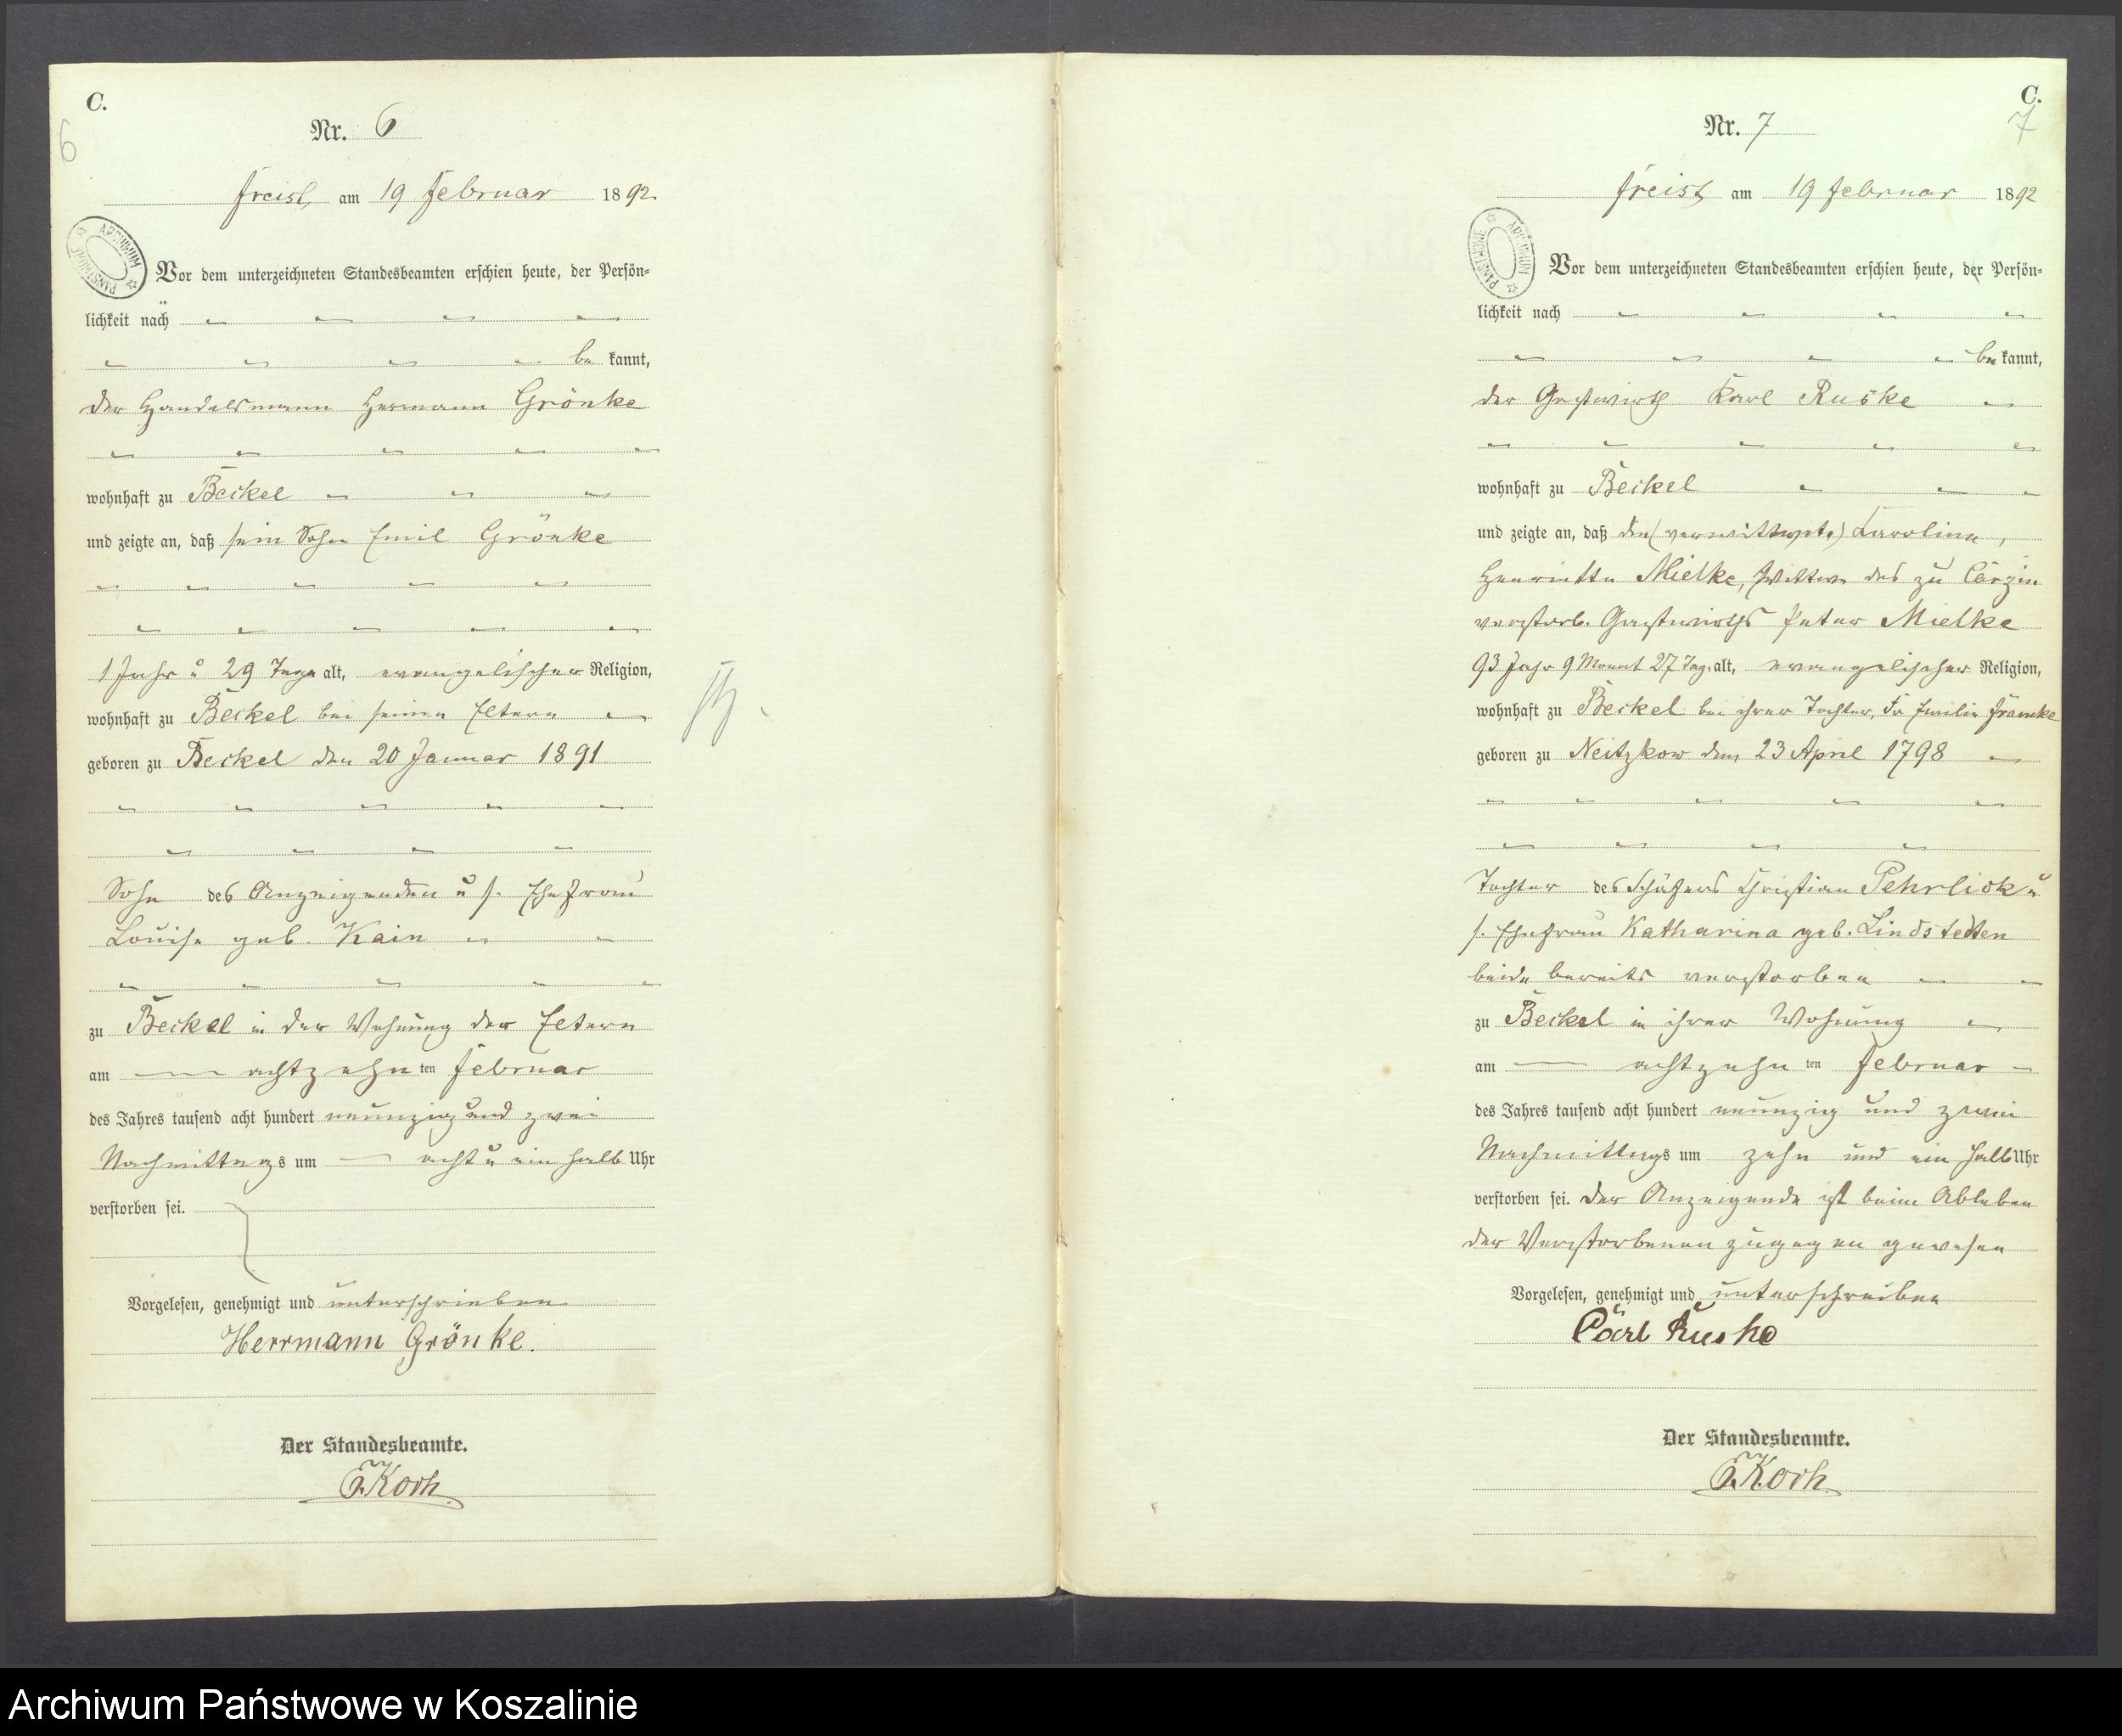 C.
6
Nr. 6
Freist, am 19 Februar 1892.
ARCHIWUM PAŃSTWOWE
Vor dem unterzeichneten Standesbeamten erschien heute, der Persön-
lichkeit nach
be kannt,
der Handelsmann Hermann Grönke
wohnhaft zu Beckel
und zeigte an, daß sein Sohn Emil Grönke
1 Jahr u 29 Tage alt, evangelischer Religion,
wohnhaft zu Beckel bei seinen Eltern
geboren zu Beckel den 20 Januar 1891
Sohn des Anzeigenden u s. Ehefrau
Louise geb. Kain
zu Beckel in der Wohnung der Eltern
am achtzehn ten Februar
des Jahres tausend acht hundert neunzig und zwei
Nachmittags um acht u ein halb Uhr
verstorben sei.
Vorgelesen, genehmigt und unterschrieben
Herrmann Grönke.
Der Standesbeamte.
Koch
C.
7
Nr. 7
Freist am 19 Februar 1892
ARCHIWUM PAŃSTWOWE
Vor dem unterzeichneten Standesbeamten erschien heute, der Persön-
lichkeit nach
be kannt,
der Gastwirth Karl Ruske
wohnhaft zu Beckel
und zeigte an, daß die (verwittwete) Karoline,
Henriette Mielke, Wittwe des zu Carzin
verstorb. Gastwirths Peter Mielke
93 Jahr 9 Monat 27 Tag. alt, evangelischer Religion,
wohnhaft zu Beckel bei ihrer Tochter, Fr Emilie Framke
geboren zu Neitzkow den 23 April 1798
Tochter des Schäfers Christian Pehrlick u
s. Ehefrau Katharina geb. Lindstedten
beide bereits verstorben
zu Beckel in ihrer Wohnung
am achtzehn ten Februar
des Jahres tausend acht hundert neunzig und zwei
Nachmittags um zehn und ein halb Uhr
verstorben sei. Der Anzeigende ist beim Ableben
der Verstorbenen zugegen gewesen
Vorgelesen, genehmigt und unterschreiben
Carl Ruske
Der Standesbeamte.
Koch
Archiwum Państwowe w Koszalinie